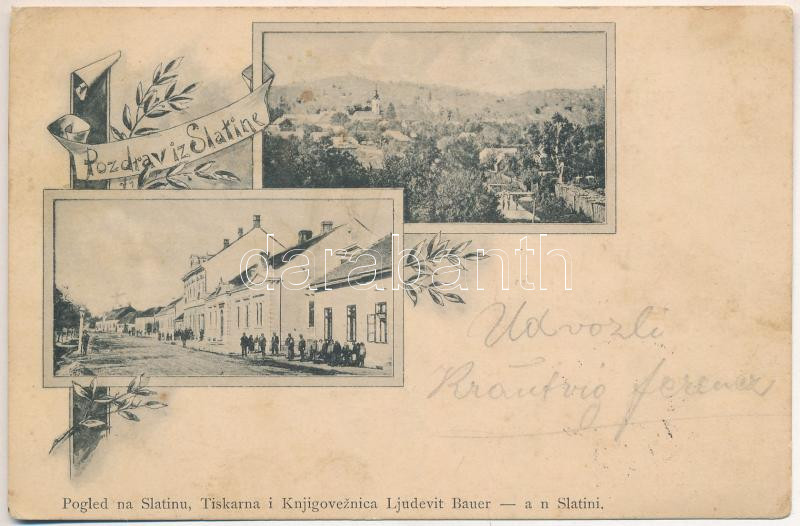 Pozdrav iz Slatine
darabanth.com
Udvözli
Ferencz
Pogled na Slatinu, Tiskarna i Knjigovežnica Ljudevit Bauer — a n Slatini.